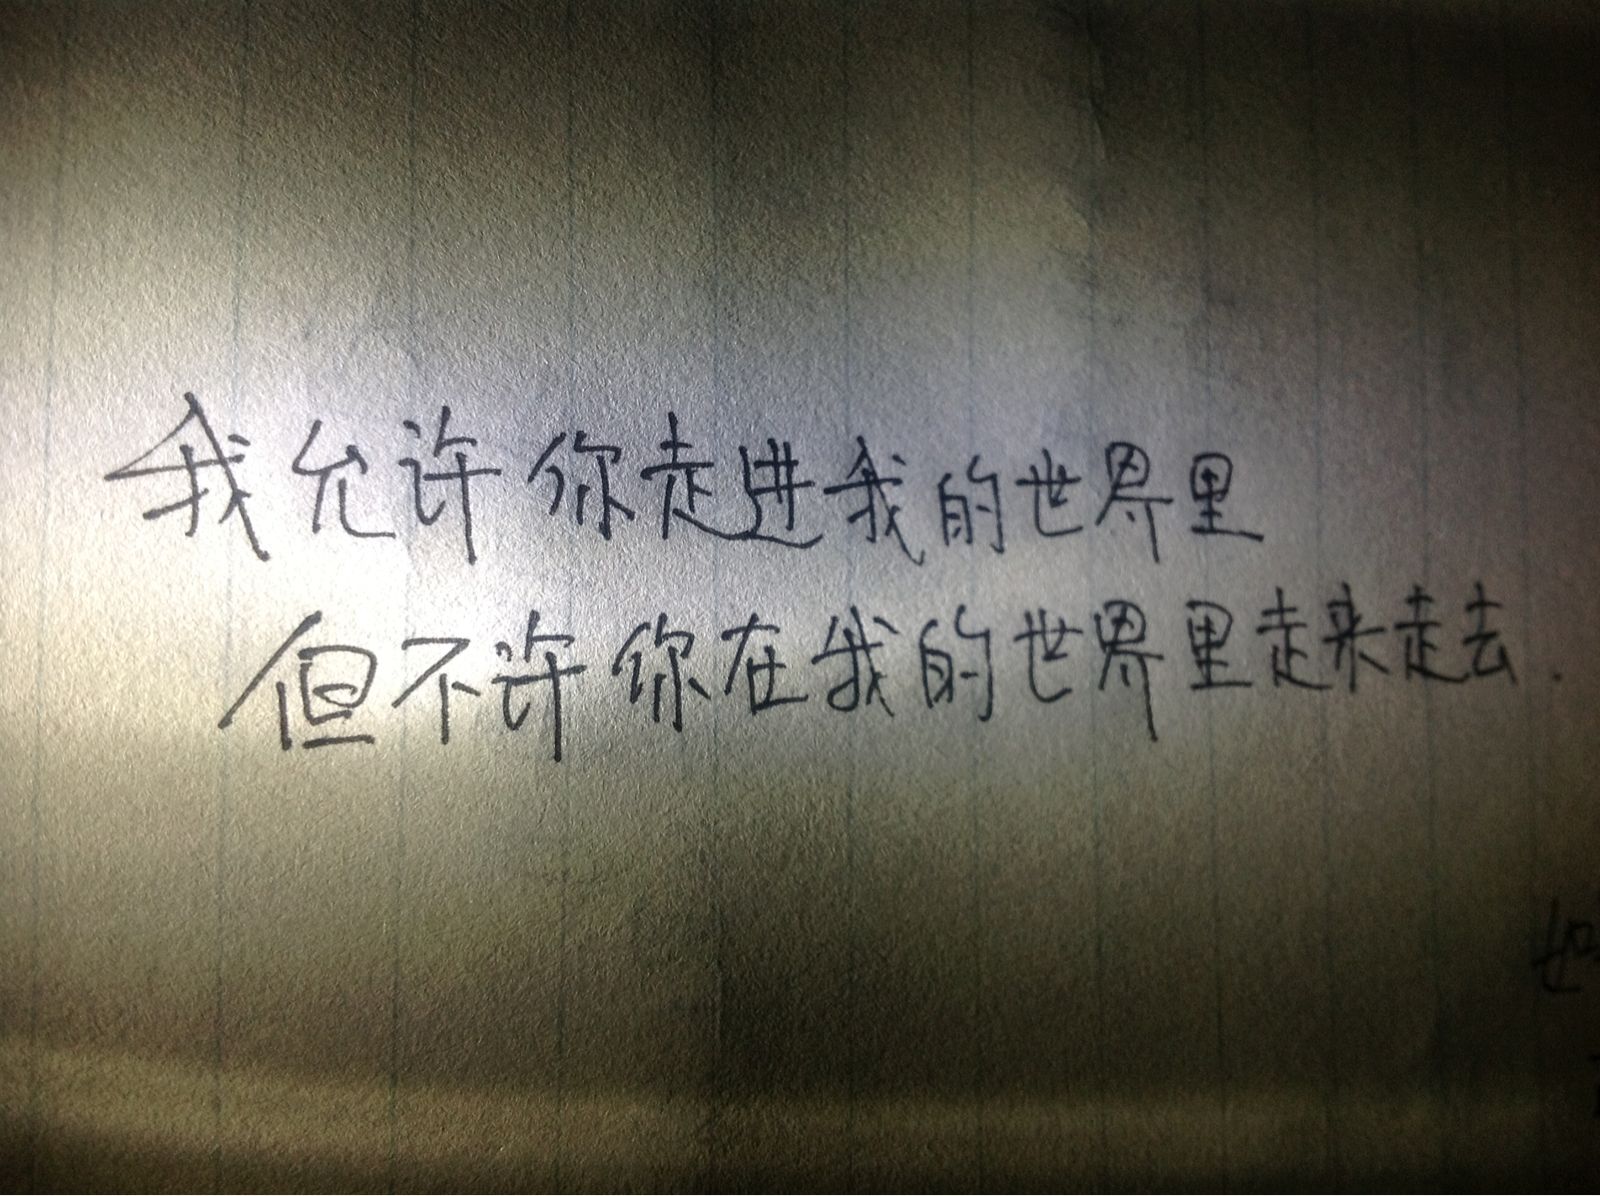 我允许你走进我的世界里
但不许你在我的世界里走来走去.